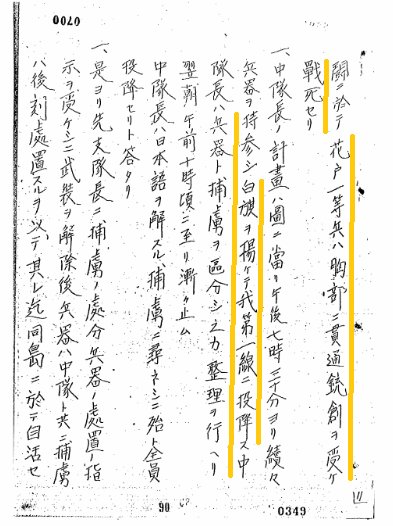 0070
闘ニ於テ花戸一等兵ハ胸部ニ貫通銃創ヲ受ケ
戰死セリ
一、中隊長ノ計畫ハ圖ニ當リ午後七時三十分ヨリ續々
兵器ヲ持参シ白旗ヲ揚ケテ我第一線ニ投降ス中
隊長ハ兵器ト捕虜ヲ區分シ之カ整理ヲ行ヘリ
翌朝午前十時頃ニ至リ漸ク止ム
中隊長ハ日本語ヲ解スル捕虜ニ尋ネシニ殆ト全員
投降セリト答タリ
一、是ヨリ先支隊長ニ捕虜ノ處分兵器ノ處置ノ指
示ヲ受ケシニ武装ヲ解除後兵器ハ中隊ト共ニ捕虜
ハ後刻處置スルヲ以テ其レ迄同島ニ於テ自活セ
90
0349